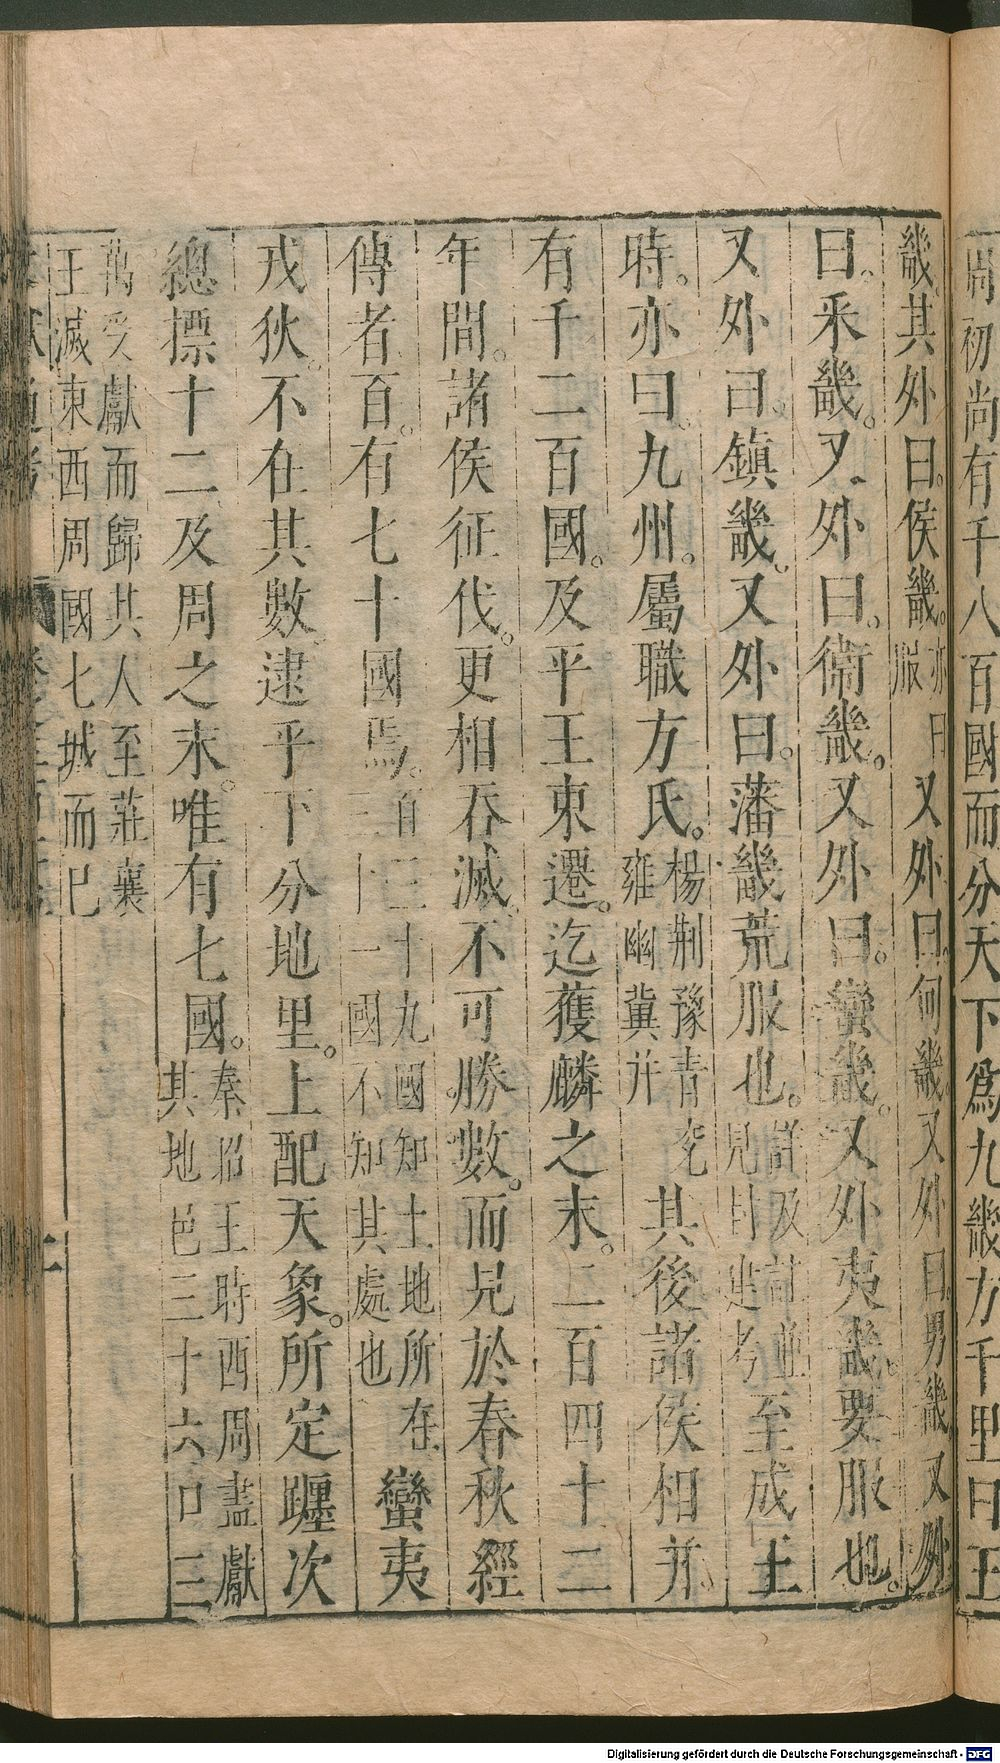 周初尚有千八百國而分天下爲九畿方千里曰王
畿。其外曰。侯畿。亦曰服又外曰。甸畿。又外曰。男畿又外
曰。采畿。又外曰。衛畿。又外曰。蠻畿。又外夷畿。要服也。
又外曰。鎮畿。又外曰。藩畿荒服也。詳及註並見封建考至成王
時。亦曰。九州。屬職方氏。楊荊豫青兖雍幽冀并其後諸侯相并。
有千二百國。及平王東遷。迄獲麟之末。二百四十二
年間。諸侯征伐。更相吞滅。不可勝數。而見於春秋經
傳者百。有七十國焉。百三十九國知土地所在三十一國不知其處也蠻夷
戎狄。不在其數逮乎下分地里。上配天象。所定躔次
總標十二及周之末。唯有七國。秦昭王時西周盡獻其地邑三十六口三
萬受獻而歸其人至莊襄王滅東西周國七城而巳